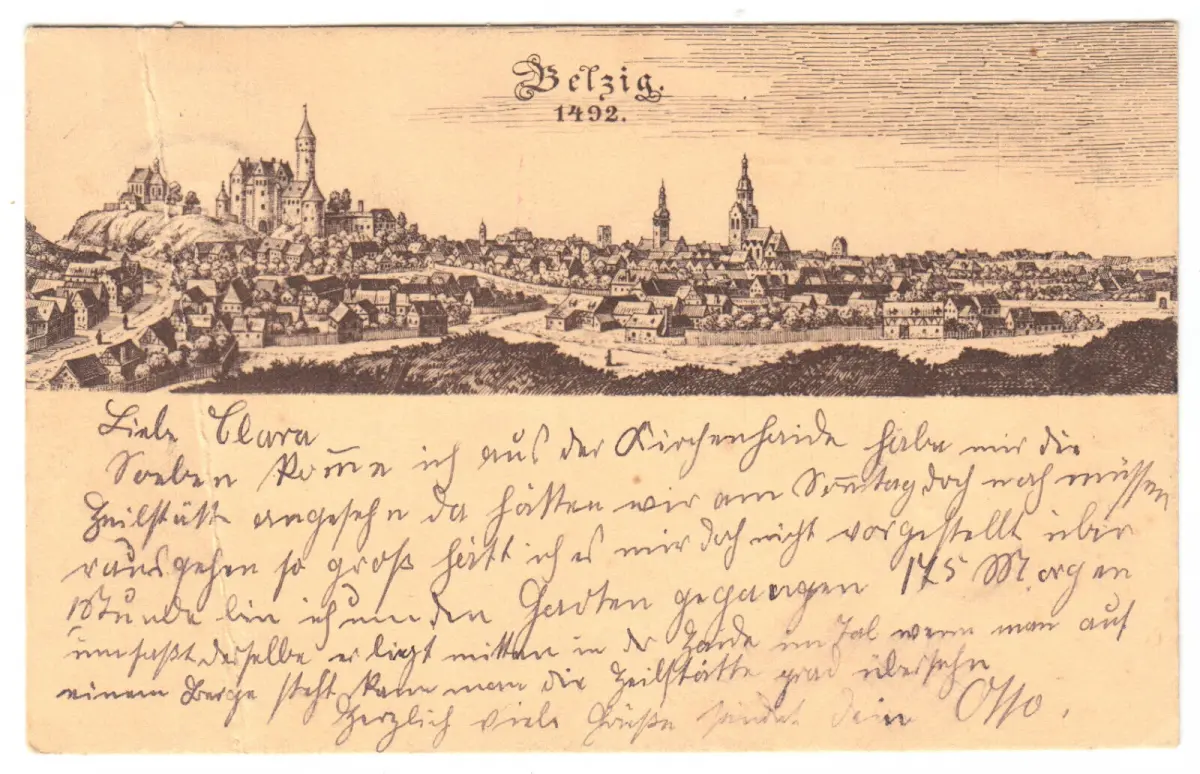 Belzig.
1492.
Liebe Clara
Soeben kom̅e ich aus der Kirchenhaide habe mir die
Heilstätte angesehn da hätten wir am Son̅tag doch noch müssen
rausgehen so groß hätt ich es mir doch nicht vorgestellt über
1 Stunde bin ich um den Garten gegangen 175 Morgen
umfaßt derselbe er liegt mitten in der Haide im Tal wenn man auf
einem Berge steht kann man die Heilstätte grad übersehn
Herzlich viele Grüße sendet dein Otto.